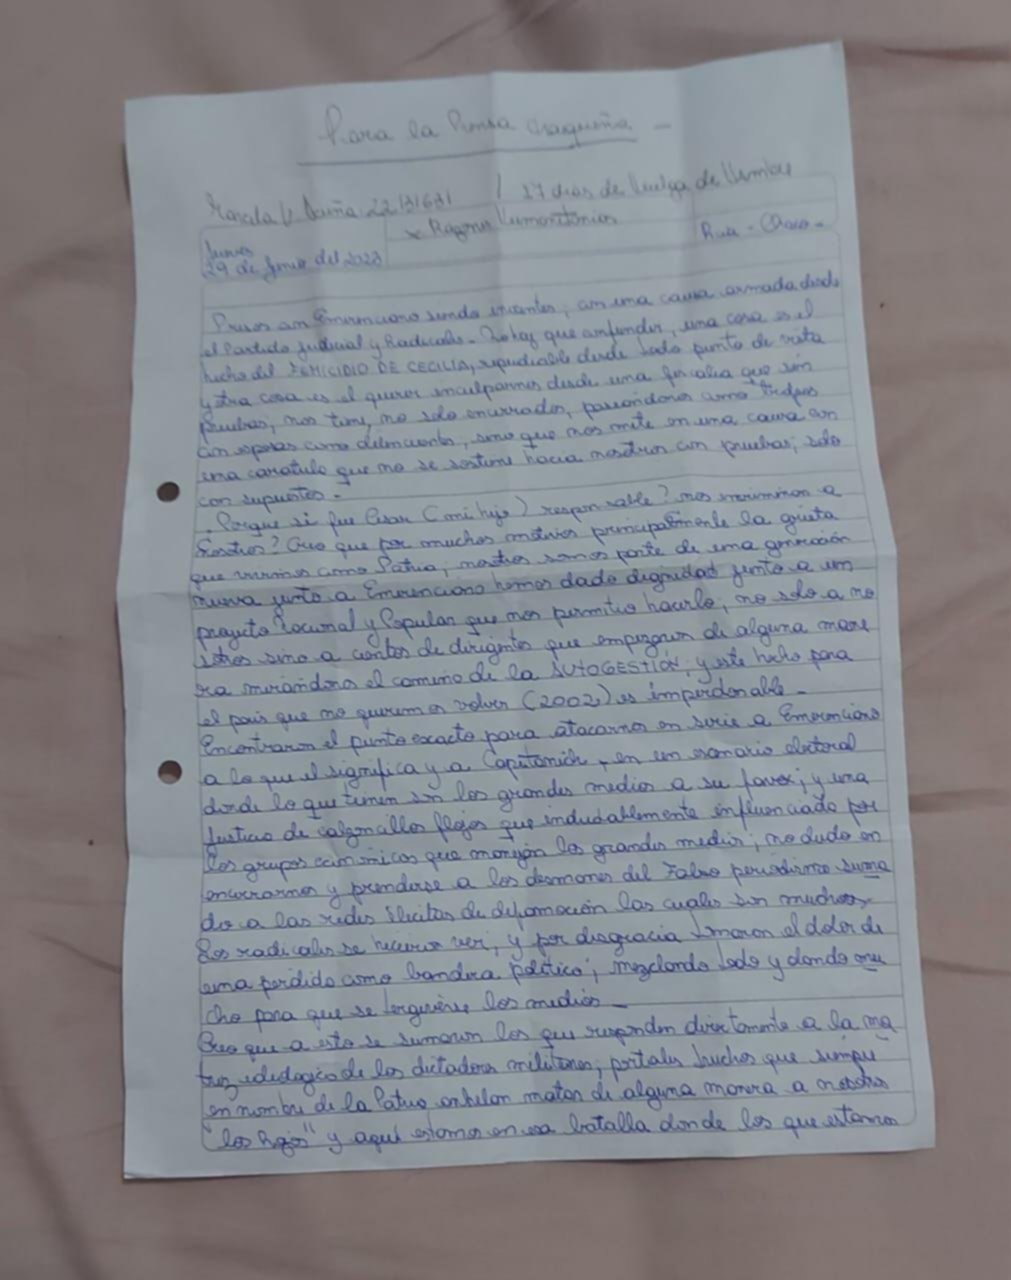 Para la Prensa chaqueña -
Marcela V. Acuña 22.131631 / 17 días de Huelga de Hambre
x Razones Humanitarias
Jueves
29 de Junio del 2023
Rcia - Chaco -
Presos con Emerenciano siendo inocentes, con una causa armada desde
el Partido Judicial y Radicales. No hay que confundir, una cosa es el
hecho del FEMICIDIO DE CECILIA, repudiable desde todo punto de vista
y otra cosa es el querer inculparnos desde una fiscalia que sin
Pruebas, nos tiene, no solo encerrados, paseandonos como trofeos
con esposas como delincuentes, sino que nos mete en una causa con
una caratula que no se sostiene hacia nosotros con pruebas, solo
con supuestos -
. Porque si fue Cesar (mi hijo) responsable? nos incriminan a
nosotros? Creo que por muchos motivos principalmente la grieta
que vivimos como Patria, nosotros somos parte de una generación
nueva junto a Emerenciano hemos dado dignidad junto a un
proyecto Nacional y Popular que nos permitio hacerlo, no solo a no
sotros sino a cientos de dirigentes que empezaron de alguna mane
ra mirandonos el camino de la AUTOGESTIÓN, y este hecho para
el pais que no queremos volver (2002) es imperdonable -
Encontraron el punto exacto para atacarnos en serie a Emerenciano
a lo que el significa y a Capitanich, en un escenario electoral
donde lo que tienen son los grandes medios a su favor; y una
Justicia de calzoncillos flojos que indudablemente influenciado por
los grupos economicos que manejan los grandes medios, no dudo en
encerrarnos y prenderse a los desmanes del Falso periodismo suma
do a las redes ilicitas de difamación las cuales son muchas -
Los radicales se hicieron ver, y por disgracia tomaron el dolor de
una perdida como bandera política, mezclando todo y dando mu
cho para que se tergiverse los medios -
Creo que a esto se sumaron los que responden directamente a la ma
triz ideologica de los dictadores militares, portales truchos que siempre
en nombre de la Patria anhelan matar de alguna manera a nosotros
"los Rojos" y aquí estamos en esa batalla donde los que estamos